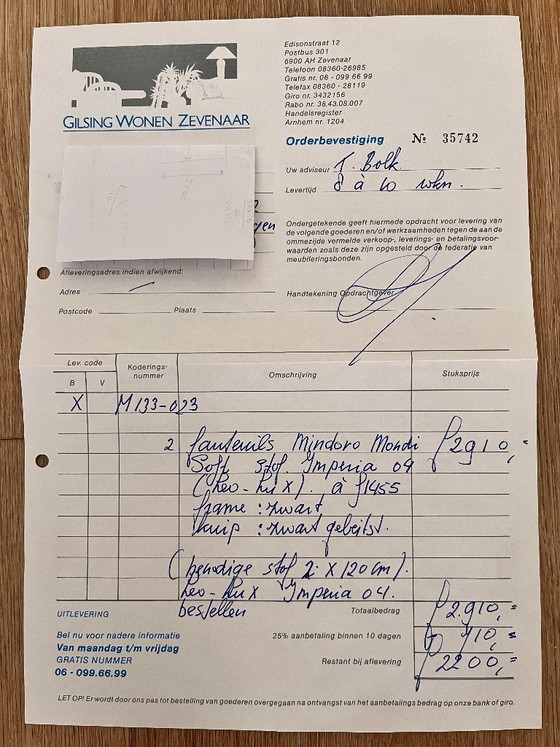 GILSING WONEN ZEVENAAR
Edisonstraat 12
Postbus 301
6900 AH Zevenaar
Telefoon 08360-26985
Gratis nr. 06 - 099 66 99
Telefax 08360 - 28119
Giro nr. 3432156
Rabo nr. 38.43.08.007
Handelsregister
Arnhem nr. 1204
Orderbevestiging № 35742
Uw adviseur T. Bolk.
Levertijd 8 à 10 wkn.
Ondergetekende geeft hiermede opdracht voor levering van
de volgende goederen en/of werkzaamheden tegen de aan
ommezijde vermelde verkoop-, leverings- en betalingsvoor-
waarden zoals deze zijn opgesteld door de federatie van
meubileringsbonden.
Afleveringsadres indien afwijkend:
Adres
Handtekening Opdrachtgever
Postcode Plaats
Lev. code
B V
Koderings-
nummer
Omschrijving
Stuksprijs
X M133-023
2 fauteuils Mindoro Mondi ƒ2910,=
Soft stof. Imperia 04
(Leo-Lux). à ƒ1455
frame : zwart
kuip : zwart gebeitst.
(benodige stof 2 x 120 cm).
Leo-Lux Imperia 04.
bestellen
UITLEVERING
Totaalbedrag ƒ2.910,=
Bel nu voor nadere informatie
Van maandag t/m vrijdag
GRATIS NUMMER
06 - 099.66.99
25% aanbetaling binnen 10 dagen ƒ 710,=
Restant bij aflevering ƒ2200,=
LET OP! Er wordt door ons pas tot bestelling van goederen overgegaan na ontvangst van het aanbetalings bedrag op onze bank of giro.